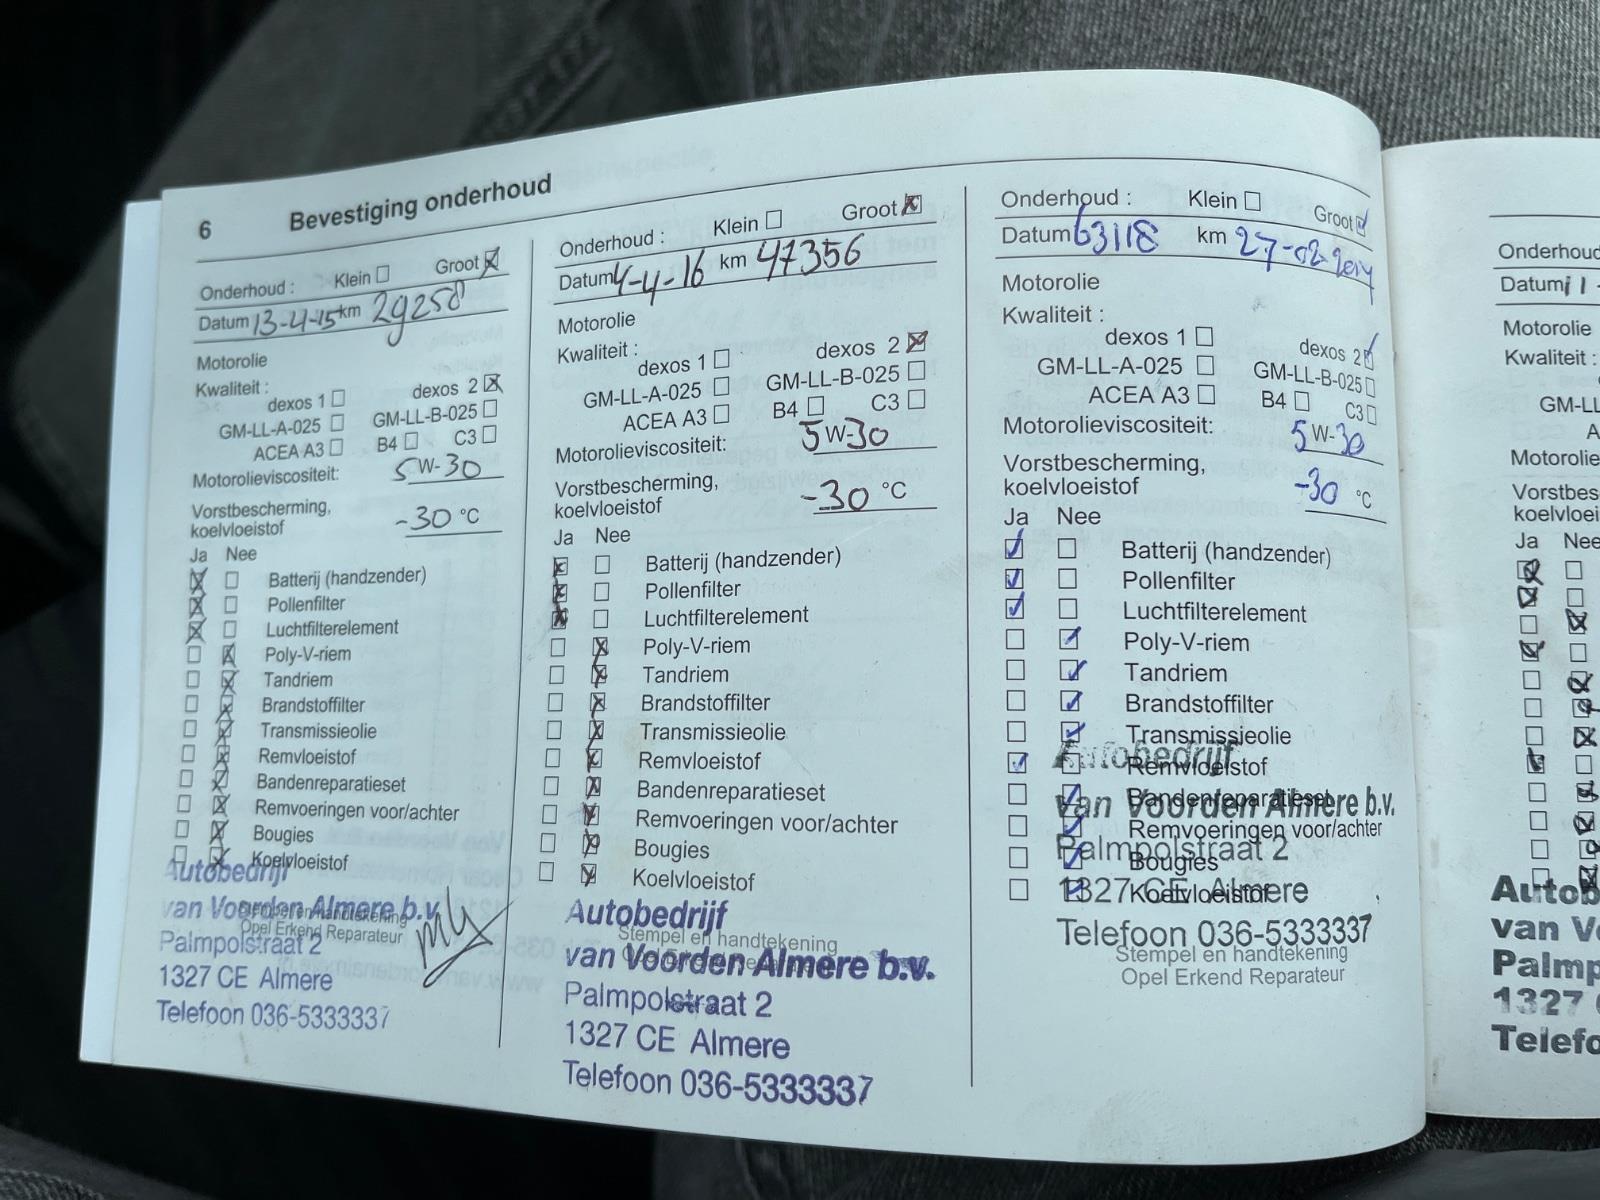 6 Bevestiging onderhoud
Onderhoud : Klein Groot
Datum 13-4-15 km 29258
Motorolie
Kwaliteit :
dexos 1 dexos 2
GM-LL-A-025 GM-LL-B-025
ACEA A3 B4 C3
Motorolieviscositeit: 5W-30
Vorstbescherming,
koelvloeistof -30 °C
Ja Nee
Batterij (handzender)
Pollenfilter
Luchtfilterelement
Poly-V-riem
Tandriem
Brandstoffilter
Transmissieolie
Remvloeistof
Bandenreparatieset
Remvoeringen voor/achter
Bougies
Koelvloeistof
Autobedrijf
van Voorden Almere b.v.
Stempel en handtekening
Opel Erkend Reparateur
Palmpolstraat 2
1327 CE Almere
Telefoon 036-5333337
Onderhoud : Klein Groot
Datum 4-4-16 km 47356
Motorolie
Kwaliteit :
dexos 1 dexos 2
GM-LL-A-025 GM-LL-B-025
ACEA A3 B4 C3
Motorolieviscositeit: 5W-30
Vorstbescherming,
koelvloeistof -30 °C
Ja Nee
Batterij (handzender)
Pollenfilter
Luchtfilterelement
Poly-V-riem
Tandriem
Brandstoffilter
Transmissieolie
Remvloeistof
Bandenreparatieset
Remvoeringen voor/achter
Bougies
Koelvloeistof
Autobedrijf
Stempel en handtekening
van Voorden Almere b.v.
Palmpolstraat 2
1327 CE Almere
Telefoon 036-5333337
Onderhoud : Klein Groot
Datum 63118 km 27-02-
Motorolie
Kwaliteit :
dexos 1 dexos 2
GM-LL-A-025 GM-LL-B-025
ACEA A3 B4 C3
Motorolieviscositeit: 5W-30
Vorstbescherming,
koelvloeistof -30 °C
Ja Nee
Batterij (handzender)
Pollenfilter
Luchtfilterelement
Poly-V-riem
Tandriem
Brandstoffilter
Transmissieolie
Autobedrijf
Remvloeistof
Bandenreparatieset
van Voorden Almere b.v.
Remvoeringen voor/achter
Palmpolstraat 2
Bougies
1327 CE Almere
Koelvloeistof
Telefoon 036-5333337
Stempel en handtekening
Opel Erkend Reparateur
Onderhoud
Datum 11-
Motorolie
Kwaliteit :
GM-LL
A
Motorolie
Vorstbes
koelvloei
Ja Nee
Autob
van Vo
Palmp
1327
Telefo